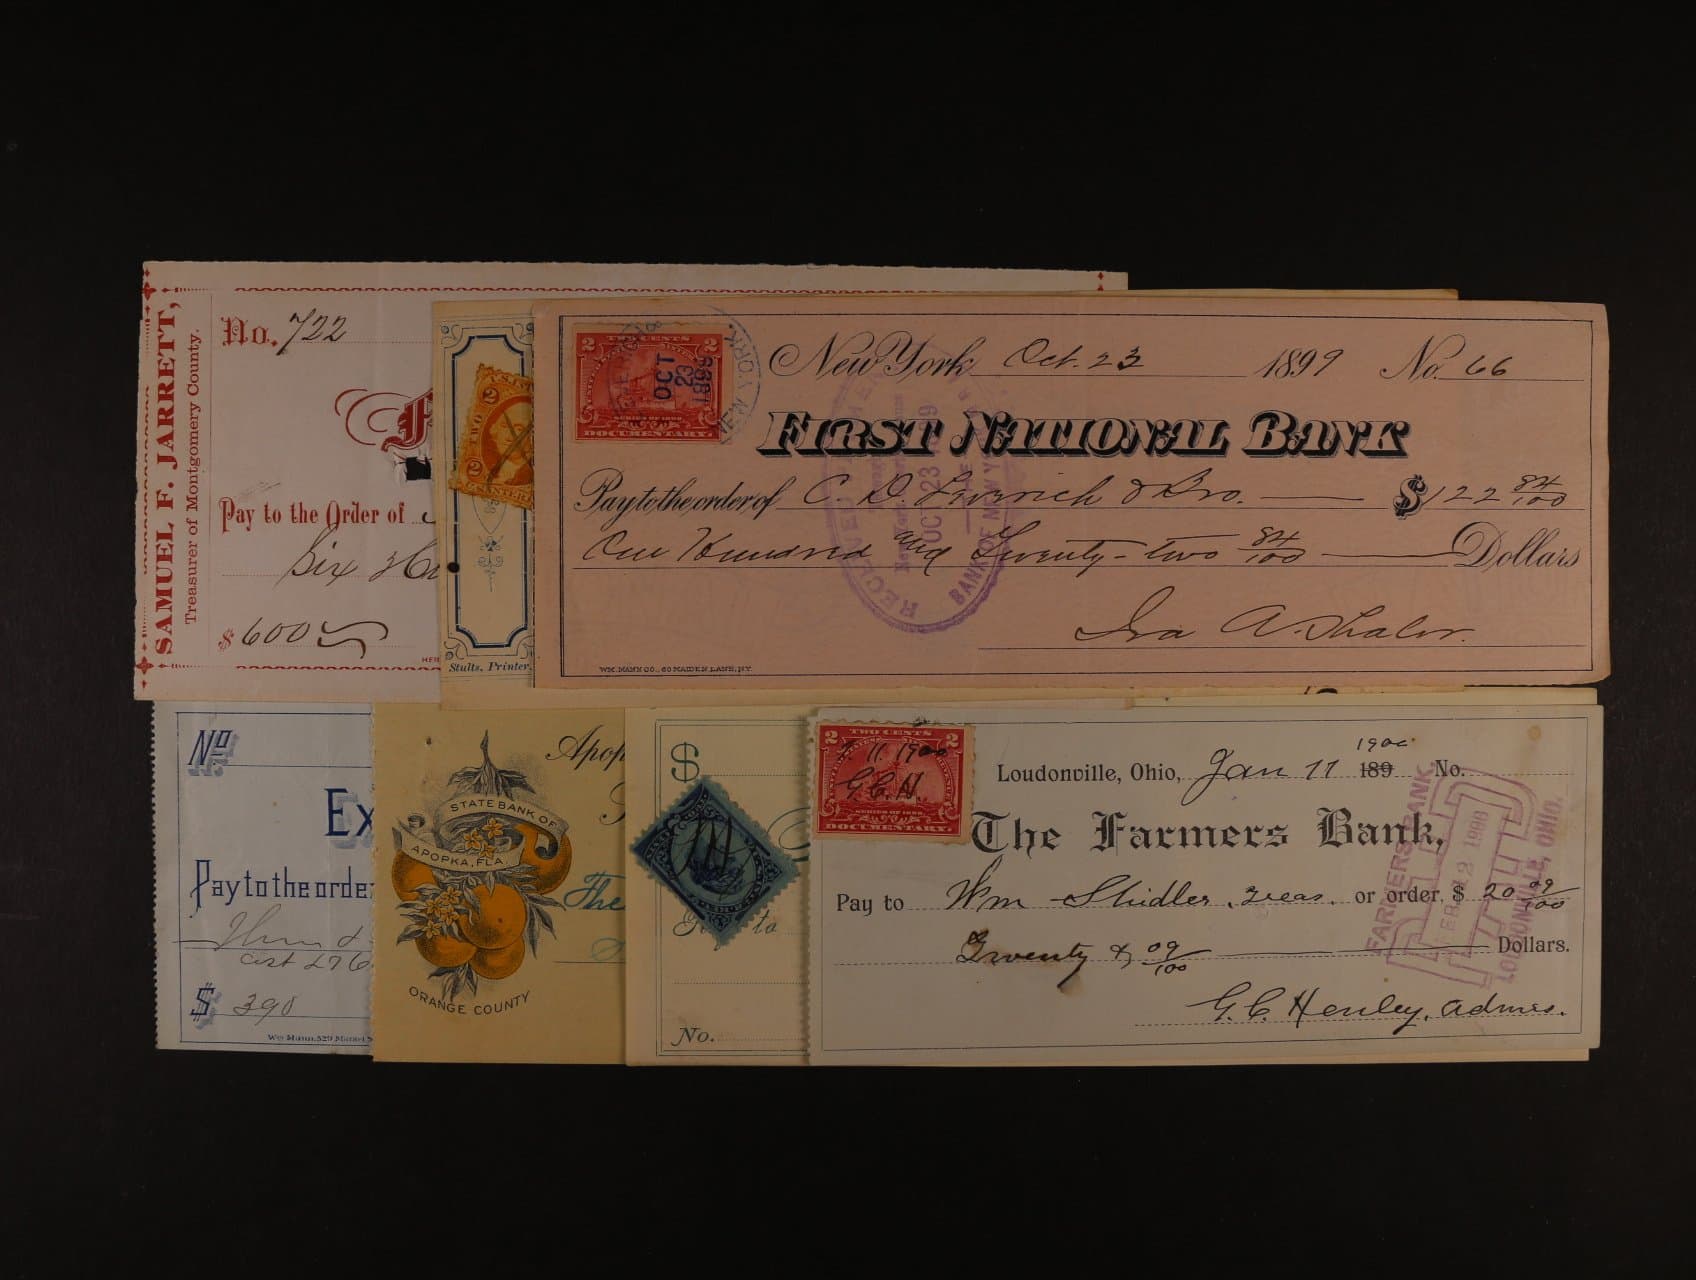 SAMUEL F. JARRETT,
Treasurer of Montgomery County.
No. 722
Pay to the Order of
Six Hu
$ 600
Stults, Printer.
U.S. INTER
TWO
2
2
TWO CENTS
2 2
SERIES OF 1898
DOCUMENTARY.
OCT
23
1899
NEW YORK.
New York Oct. 23 1899 No. 66
FIRST NATIONAL BANK
Pay to the order of C. D. Leverich & Bro. $122 84/100
One Hundred and Twenty-two 84/100 Dollars
Ira A. Thaler.
RECEIVED
OCT 23
BANK OF NEW Y
WM. MANN CO., 60 MAIDEN LANE, N.Y.
No
Ex
Pay to the orde
$ 390
Wm Mann, 529 Market
Apop
STATE BANK OF
APOPKA, FLA.
The
ORANGE COUNTY
$
to
No.
TWO CENTS
2 2
11. 1900
G.C.H.
SERIES OF 1898
DOCUMENTARY.
1900
Loudonville, Ohio, Jan 11 189 No.
The Farmers Bank,
Pay to Wm Shidler, Treas. or order, $ 20 09/100
Twenty & 09/100 Dollars.
G. C. Henley, Admrs.
FARMERS BANK.
FARMERS BANK
FEB 12 1900
LOUDONVILLE, OHIO.